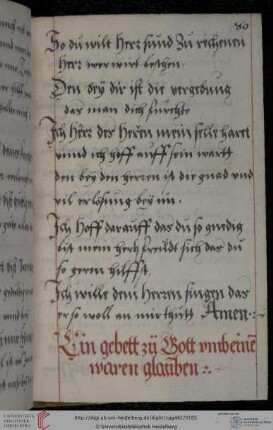 80
So du wilt Herr sund zu rechenen
Herr wer wirt besthen.
Den bey dir ist die vergebung
das man dich furchte
Ich Herr des Herrn mein selle haret
unnd ich hoff auff sein wartt
den bey den herren ist die gnad und
vil erlosung bey im.
Ich hoff darauff das du so gnedig
bist mein hertz freudt sich das du
so geren hilffst.
Ich wille dem Herren singen das
er so woll an mir thutt Amen
Ein gebett zu Gott umbeine
waren glauben
http://digi.ub.uni-heidelberg.de/diglit/cpg442/0165
© Universitätsbibliothek Heidelberg